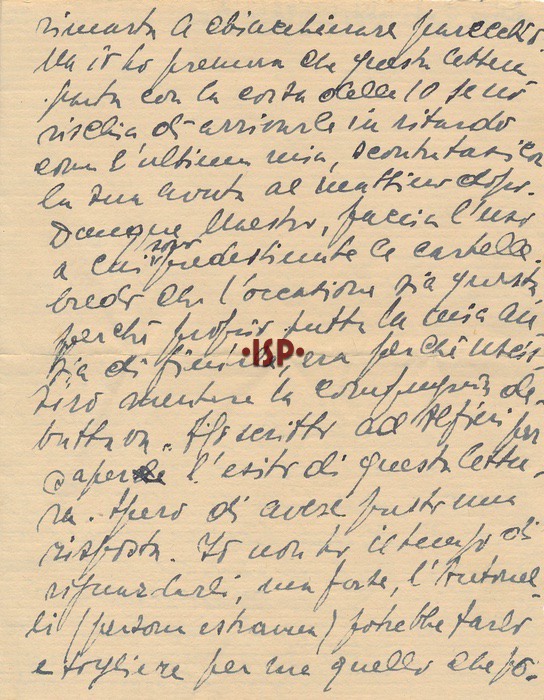 rimasta a chiacchierare parecchio.
Ma io ho premura che questa lettera
parta con la corsa delle 10 se no
rischia di arrivarle in ritardo
come l'ultima mia,
la sua avuta al mattino dopo.
Dunque Maestro, faccia l'uso
a cui sono predestinate le cartelle.
Credo che l'occasione sia questa
perché proprio tutta la mia an-
sia di finirle, era perché uscis-
sero mentre la compagnia de-
buttava. Ho scritto ad Alfieri per
sapere l'esito di questa lettu-
ra. Spero di avere presto una
risposta. Io non ho il tempo di
riguardarli, ma forse, l'Antonel-
li (persona estranea) potrebbe farlo
e togliere per me quello che po-
·ISP·